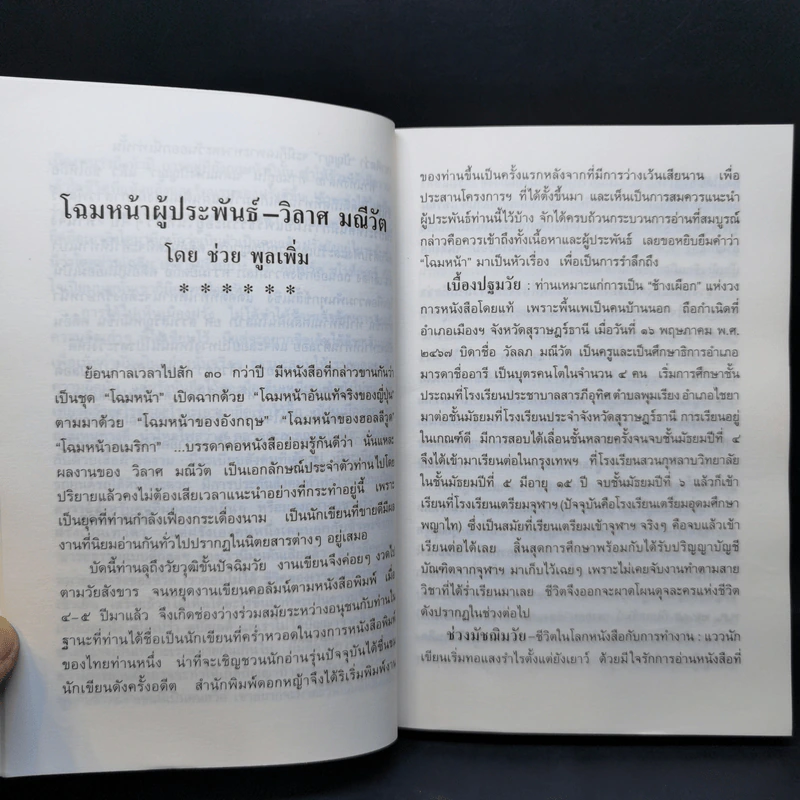 โฉมหน้าผู้ประพันธ์–วิลาศ มณีวัต
โดย ช่วย พูลเพิ่ม
* * * * * *
ย้อนกาลเวลาไปสัก ๓๐ กว่าปี มีหนังสือที่กล่าวขานกันว่า
เป็นชุด “โฉมหน้า” เปิดฉากด้วย “โฉมหน้าอันแท้จริงของญี่ปุ่น”
ตามมาด้วย “โฉมหน้าของอังกฤษ” “โฉมหน้าของฮอลลีวูด”
“โฉมหน้าอเมริกา” ...บรรดาคอหนังสือย่อมรู้กันดีว่า นั่นแหละ
ผลงานของ วิลาศ มณีวัต เป็นเอกลักษณ์ประจำตัวท่านไปโดย
ปริยายแล้วคงไม่ต้องเสียเวลาแนะนำอย่างที่กระทำอยู่นี้ เพราะ
เป็นยุคที่ท่านกำลังเฟื่องกระเดื่องนาม เป็นนักเขียนที่ขายดีมีผล
งานที่นิยมอ่านกันทั่วไปปรากฏในนิตยสารต่างๆ อยู่เสมอ
บัดนี้ท่านลุถึงวัยวุฒิขั้นปัจฉิมวัย งานเขียนจึงค่อยๆ งวดไป
ตามวัยสังขาร จนหยุดงานเขียนคอลัมน์ตามหนังสือพิมพ์ เมื่อ
๔–๕ ปีมาแล้ว จึงเกิดช่องว่างร่วมสมัยระหว่างอนุชนกับท่านใน
ฐานะที่ท่านได้ชื่อเป็นนักเขียนที่คร่ำหวอดในวงการหนังสือพิมพ์
ของไทยท่านหนึ่ง น่าที่จะเชิญชวนนักอ่านรุ่นปัจจุบันได้ชื่นชม
นักเขียนดังครั้งอดีต สำนักพิมพ์ดอกหญ้าจึงได้ริเริ่มพิมพ์งาน
ของท่านขึ้นเป็นครั้งแรกหลังจากที่มีการว่างเว้นเสียนาน เพื่อ
ประสานโครงการฯ ที่ได้ตั้งขึ้นมา และเห็นเป็นการสมควรแนะนำ
ผู้ประพันธ์ท่านนี้ไว้บ้าง จักได้ครบถ้วนกระบวนการอ่านที่สมบูรณ์
กล่าวคือควรเข้าถึงทั้งเนื้อหาและผู้ประพันธ์ เลยขอหยิบยืมคำว่า
“โฉมหน้า” มาเป็นหัวเรื่อง เพื่อเป็นการรำลึกถึง
เบื้องปฐมวัย : ท่านเหมาะแก่การเป็น “ช้างเผือก” แห่งวง
การหนังสือโดยแท้ เพราะพื้นเพเป็นคนบ้านนอก ถือกำเนิดที่
อำเภอเมืองฯ จังหวัดสุราษฎร์ธานี เมื่อวันที่ ๑๖ พฤษภาคม พ.ศ.
๒๔๖๗ บิดาชื่อ วัลลภ มณีวัต เป็นครูและเป็นศึกษาธิการอำเภอ
มารดาชื่ออารี เป็นบุตรคนโตในจำนวน ๔ คน เริ่มการศึกษาชั้น
ประถมที่โรงเรียนประชาบาลสารภีอุทิศ ตำบลพุมเรียง อำเภอไชยา
มาต่อชั้นมัธยมที่โรงเรียนประจำจังหวัดสุราษฎร์ธานี การเรียนอยู่
ในเกณฑ์ดี มีการสอบได้เลื่อนชั้นหลายครั้งจนจบชั้นมัธยมปีที่ ๔
จึงได้เข้ามาเรียนต่อในกรุงเทพฯ ที่โรงเรียนสวนกุหลาบวิทยาลัย
ในชั้นมัธยมปีที่ ๕ มีอายุ ๑๕ ปี จบชั้นมัธยมปีที่ ๖ แล้วก็เข้า
เรียนที่โรงเรียนเตรียมจุฬาฯ (ปัจจุบันคือโรงเรียนเตรียมอุดมศึกษา
พญาไท) ซึ่งเป็นสมัยที่เรียนเตรียมเข้าจุฬาฯ จริงๆ คือจบแล้วเข้า
เรียนต่อได้เลย สิ้นสุดการศึกษาพร้อมกับได้รับปริญญาบัญชี
บัณฑิตจากจุฬาฯ มาเก็บไว้เฉยๆ เพราะไม่เคยจับงานทำตามสาย
วิชาที่ได้ร่ำเรียนมาเลย ชีวิตจึงออกจะผาดโผนดุจละครแห่งชีวิต
ดังปรากฏในช่วงต่อไป
ช่วงมัชฌิมวัย–ชีวิตในโลกหนังสือกับการทำงาน : แววนัก
เขียนเริ่มทอแสงรำไรตั้งแต่ยังเยาว์ ด้วยมีใจรักการอ่านหนังสือที่